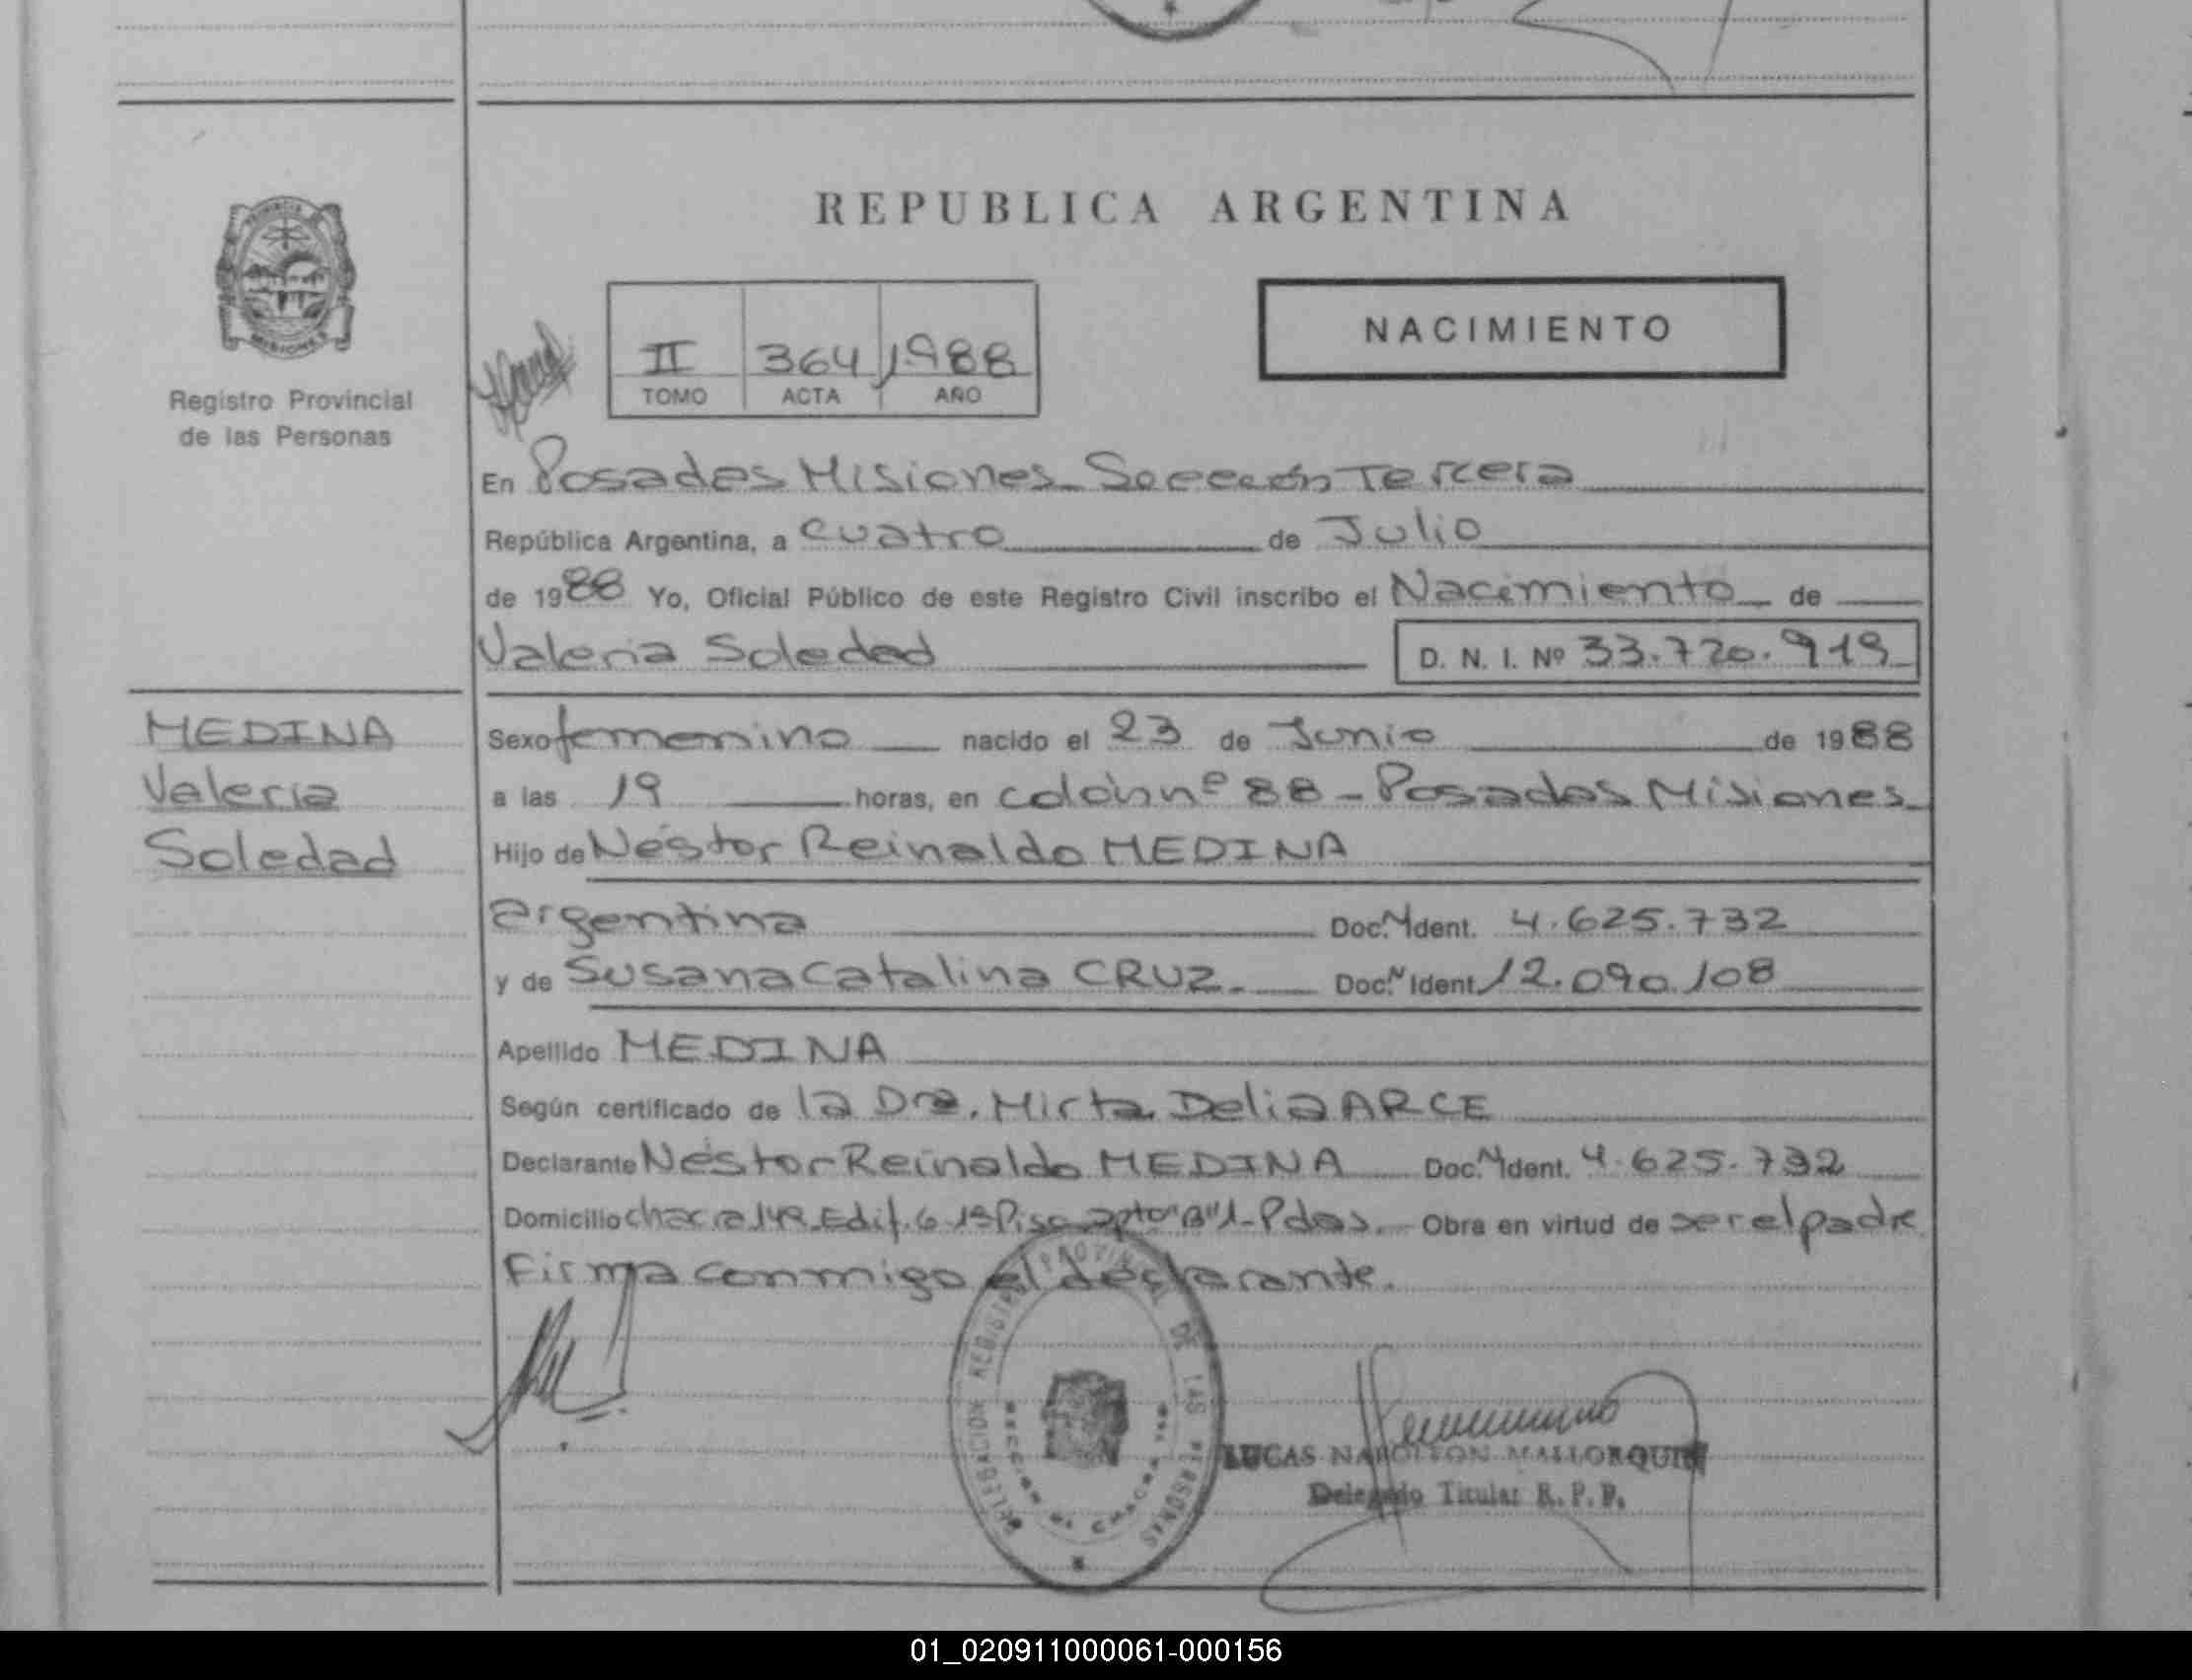 REPUBLICA ARGENTINA
NACIMIENTO
II 364 1988
TOMO ACTA AÑO
Registro Provincial
de las Personas
En Posadas Misiones Sección Tercera
República Argentina, a cuatro de Julio
de 1988 Yo, Oficial Público de este Registro Civil inscribo el Nacimiento de
Valeria Soledad D. N. I. Nº 33.720.919
MEDINA
Valeria
Soledad
Sexo femenino nacido el 23 de Junio de 1988
a las 19 horas, en colón nº 88 - Posadas Misiones
Hijo de Néstor Reinaldo MEDINA
argentina Doc. N Ident. 4.625.732
y de Susana Catalina CRUZ. Doc. N Ident. 12.090.108
Apellido MEDINA
Según certificado de la Dra. Mirta Delia ARCE
Declarante Néstor Reinaldo MEDINA Doc. N Ident. 4.625.732
Domicilio chacra 149 Edif. 6 1º Piso apto "B" 1 - Pdas. Obra en virtud de ser el padre
Firma conmigo el declarante.
DELEGACION REGISTRO PROVINCIAL DE LAS PERSONAS
LUCAS NAPOLEON MALLORQUIN
Delegado Titular R. P. P.
01_020911000061-000156